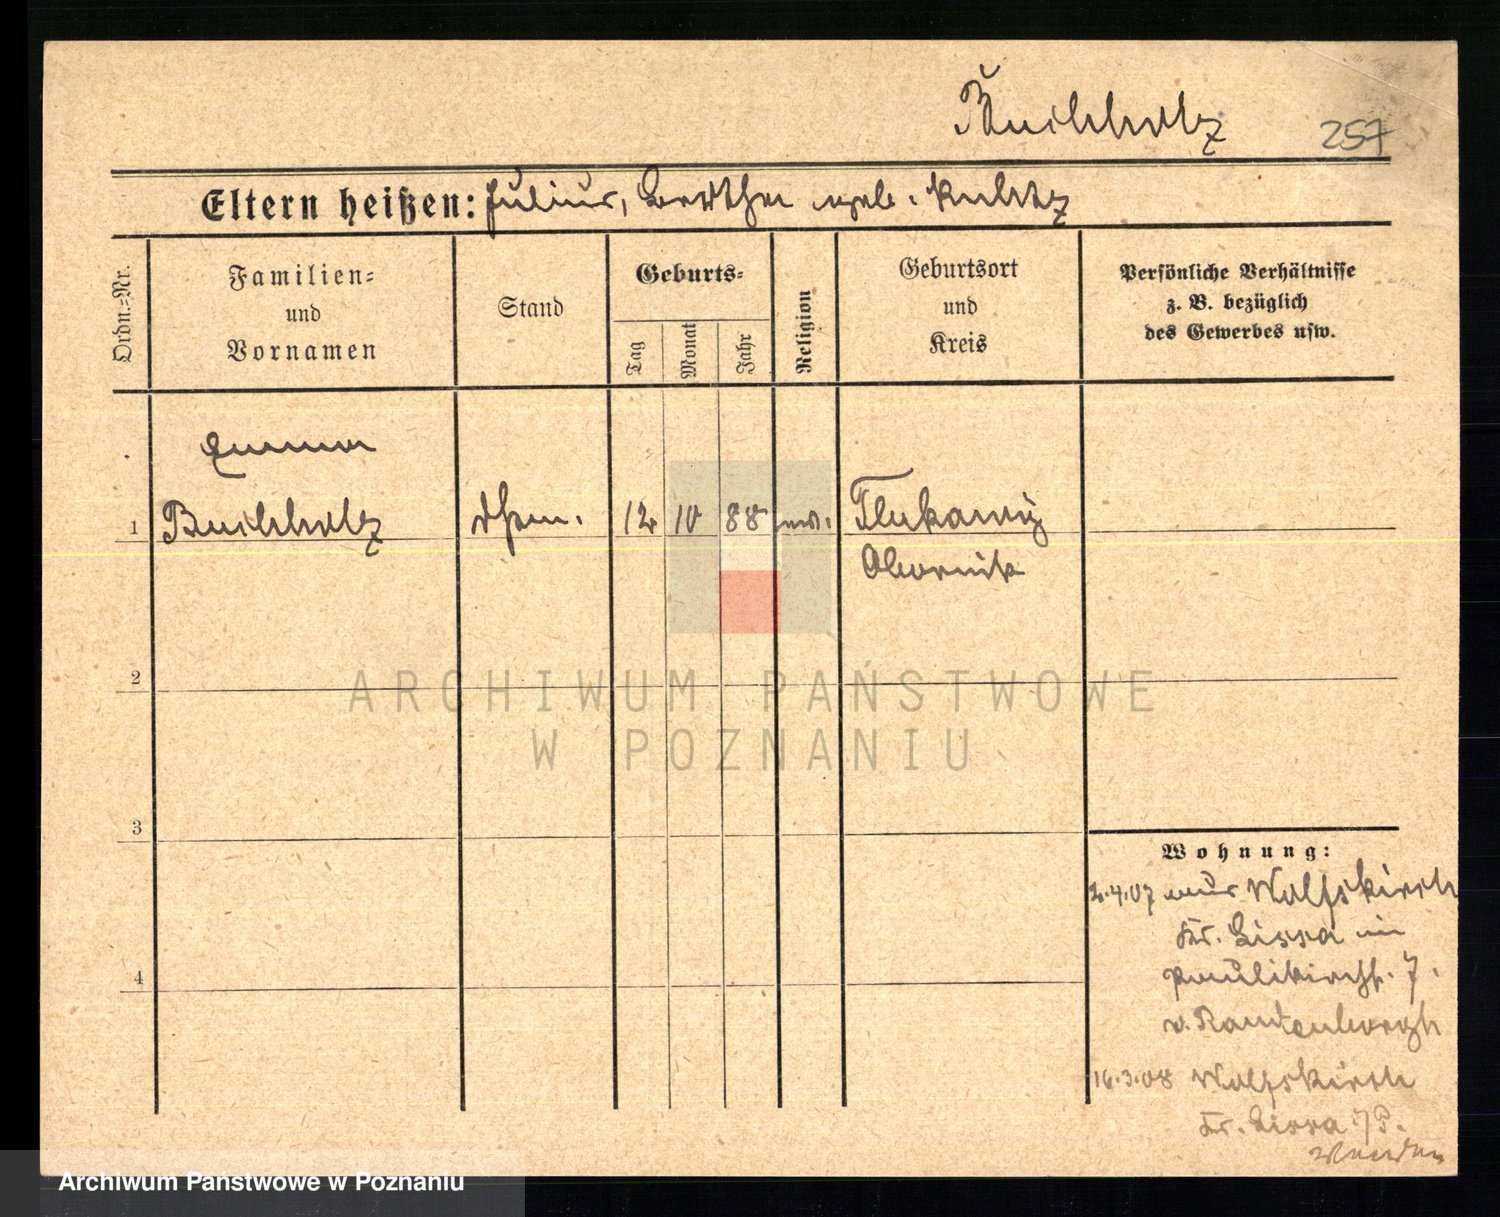 Buchholz
257
Eltern heißen: Julius, Bertha geb.
Ordn.-Nr.
Familien-
und
Vornamen
Stand
Geburts-
Tag
Monat
Jahr
Religion
Geburtsort
und
Kreis
Persönliche Verhältnisse
z. B. bezüglich
des Gewerbes usw.
Emma
1 Buchholz 12 10 88
Obornik
2
ARCHIWUM PAŃSTWOWE
W POZNANIU
3
4
Wohnung:
2.4.07 aus Wolfskirch
Kr. Lissa in
Paulikirchst. 7.
v.
16.3.08 Wolfskirch
Kr. Lissa i/P.
Wenden
Archiwum Państwowe w Poznaniu